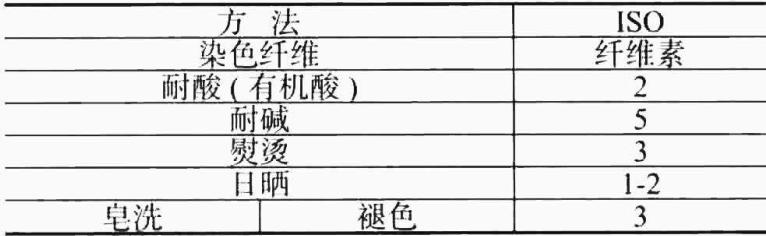 方 法 ISO
染色纤维 纤维素
耐酸(有机酸) 2
耐碱 5
熨烫 3
日晒 1-2
皂洗 褪色 3